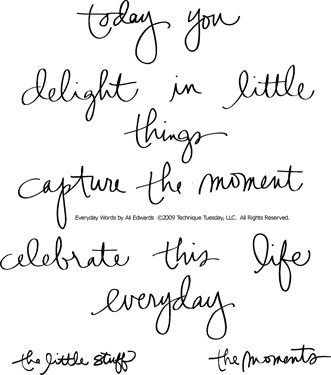 today you
delight in little
things
capture the moment
Everyday Words by Ali Edwards ©2009 Technique Tuesday, LLC. All Rights Reserved.
celebrate this life
everyday
the little stuff the moments